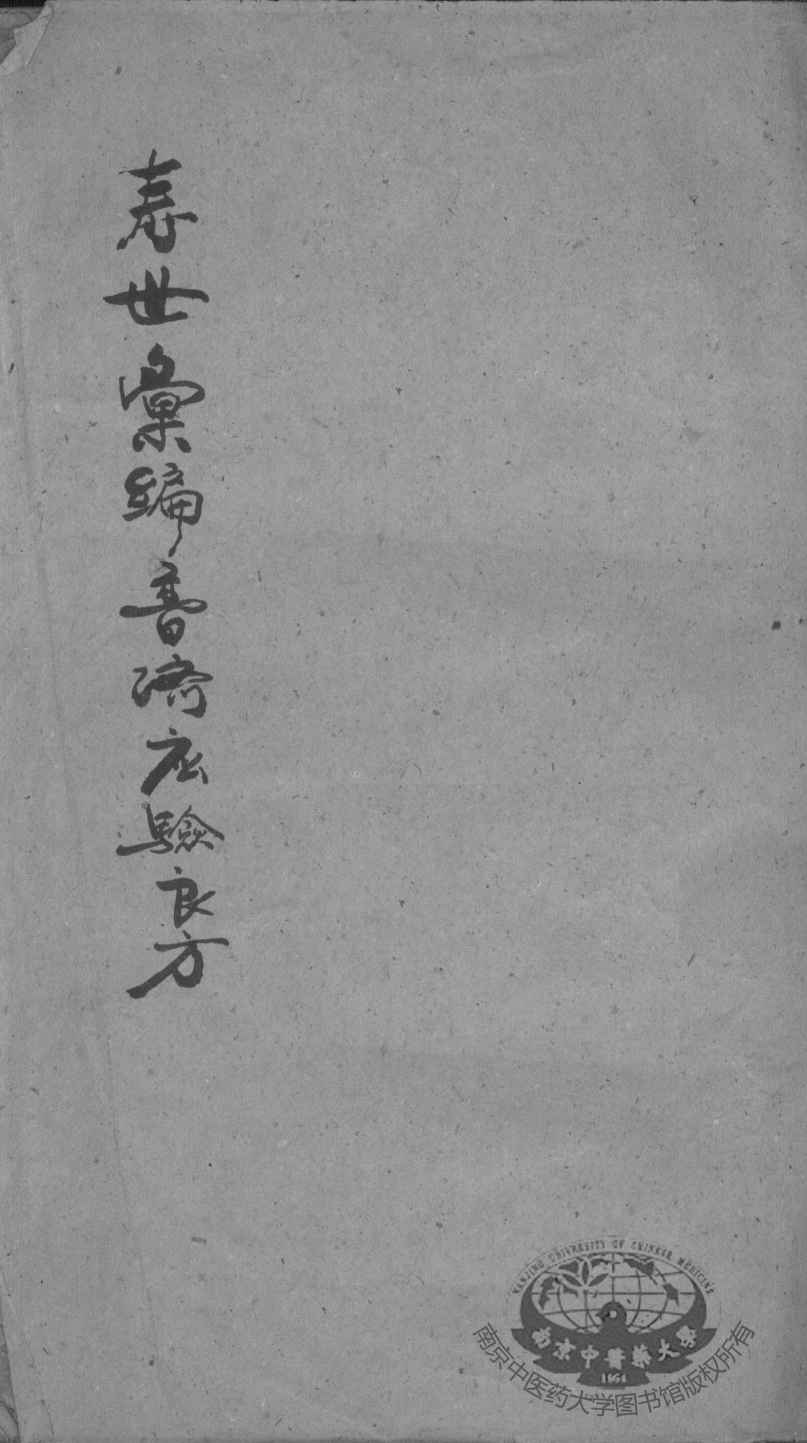 壽世彙編普濟应驗良方
NANJING UNIVERSITY OF CHINESE MEDICINE
南京中醫藥大學
1954
南京中医药大学图书馆版权所有